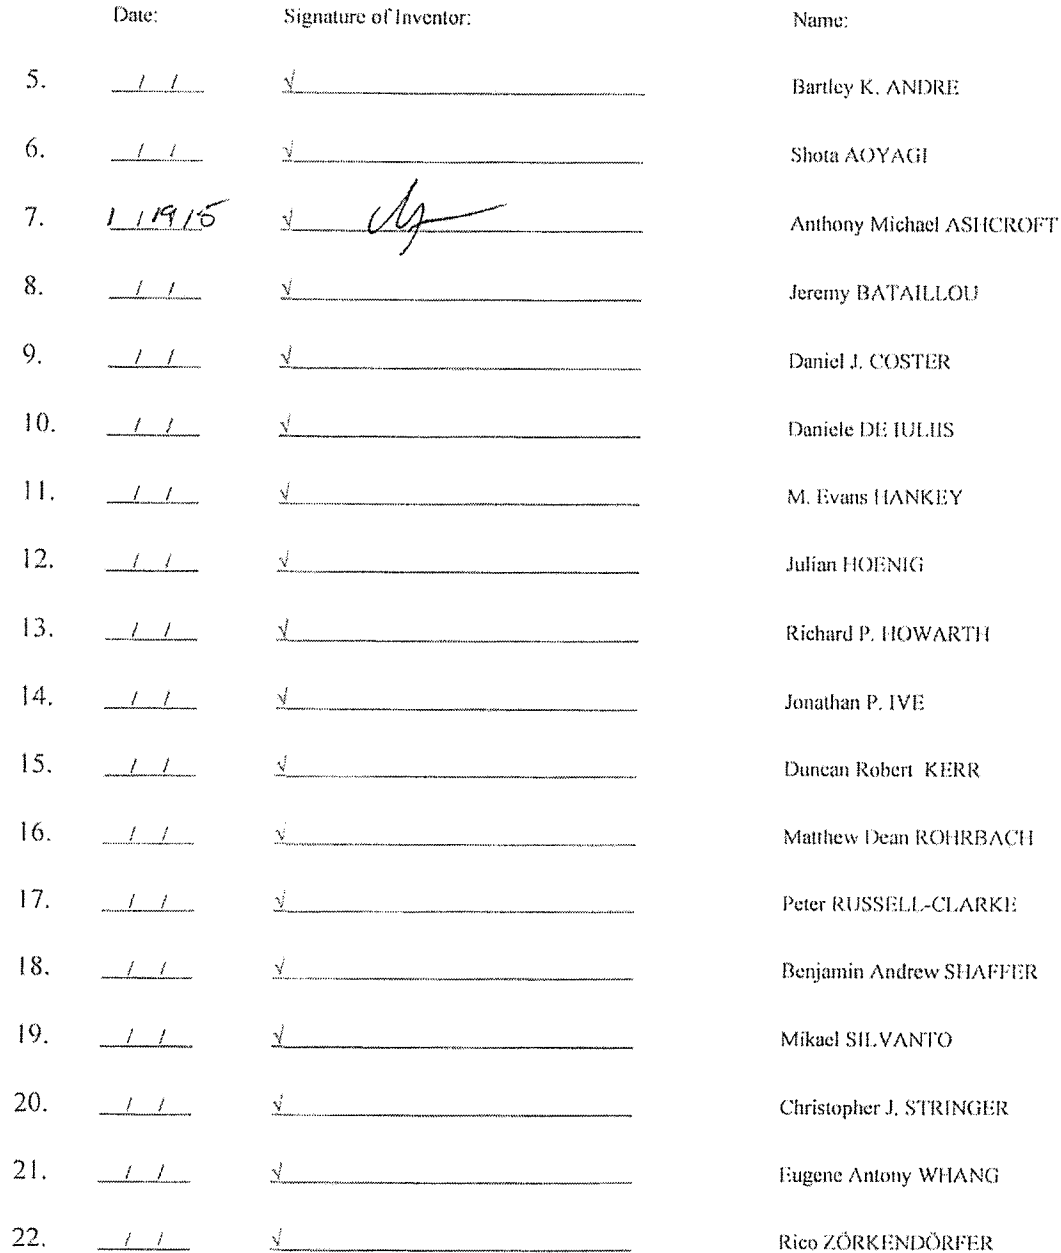 Date: Signature of Inventor: Name:
5. / / √ Bartley K. ANDRE
6. / / √ Shota AOYAGI
7. 1 / 19 / 5 √ Anthony Michael ASHCROFT
8. / / √ Jeremy BATAILLOU
9. / / √ Daniel J. COSTER
10. / / √ Daniele DE IULIIS
11. / / √ M. Evans HANKEY
12. / / √ Julian HOENIG
13. / / √ Richard P. HOWARTH
14. / / √ Jonathan P. IVE
15. / / √ Duncan Robert KERR
16. / / √ Matthew Dean ROHRBACH
17. / / √ Peter RUSSELL-CLARKE
18. / / √ Benjamin Andrew SHAFFER
19. / / √ Mikael SILVANTO
20. / / √ Christopher J. STRINGER
21. / / √ Eugene Antony WHANG
22. / / √ Rico ZÖRKENDÖRFER